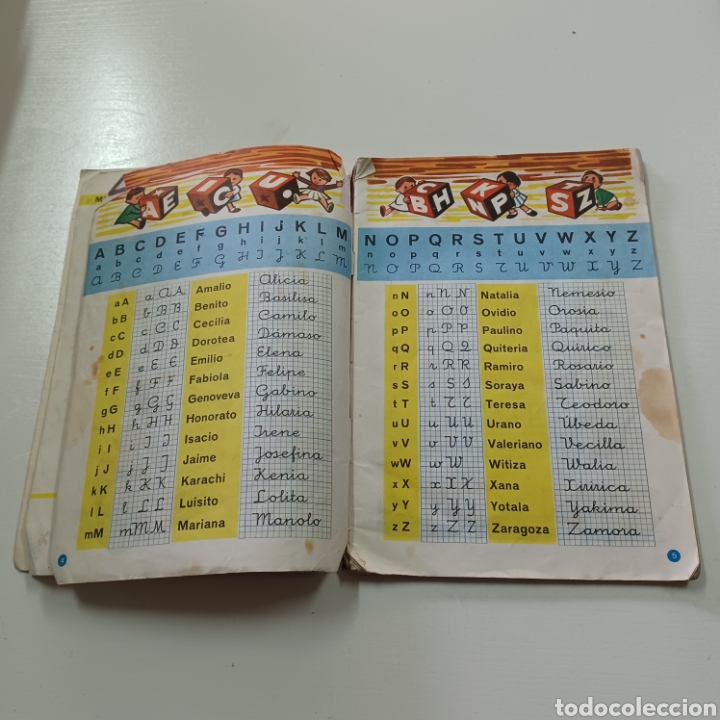 M
A E I C U.
A B C D E F G H I j K L M
a b c d e f g h i j k l m
A B C D E F G H I J K L M
a A a A A Amalio Alicia
b B b B B Benito Basilisa
c C c C C Cecilia Camilo
d D d D D Dorotea Dámaso
e E e E E Emilio Elena
f F f F F Fabiola Felipe
g G g G G Genoveva Gabino
h H h H H Honorato Hilaria
i I i I I Isacio Irene
j J j J J Jaime Josefina
k K k K K Karachi Kenia
l L l L L Luisito Lolita
mM m M M Mariana Manolo
4
C B H K N P T S Z
N O P Q R S T U V W X Y Z
n o p q r s t u v w x y z
N O P Q R S T U V W X Y Z
n N n N N Natalia Nemesio
o O o O O Ovidio Orosia
p P p P P Paulino Paquita
q Q q Q Q Quiteria Quirico
r R r R R Ramiro Rosario
s S s S S Soraya Sabino
t T t T T Teresa Teodoro
u U u U U Urano Úbeda
v V v V V Valeriano Vecilla
wW w W Witiza Walia
x X x X X Xana Xiririca
y Y y Y Y Yotala Yakima
z Z z Z Z Zaragoza Zamora
5
todocoleccion